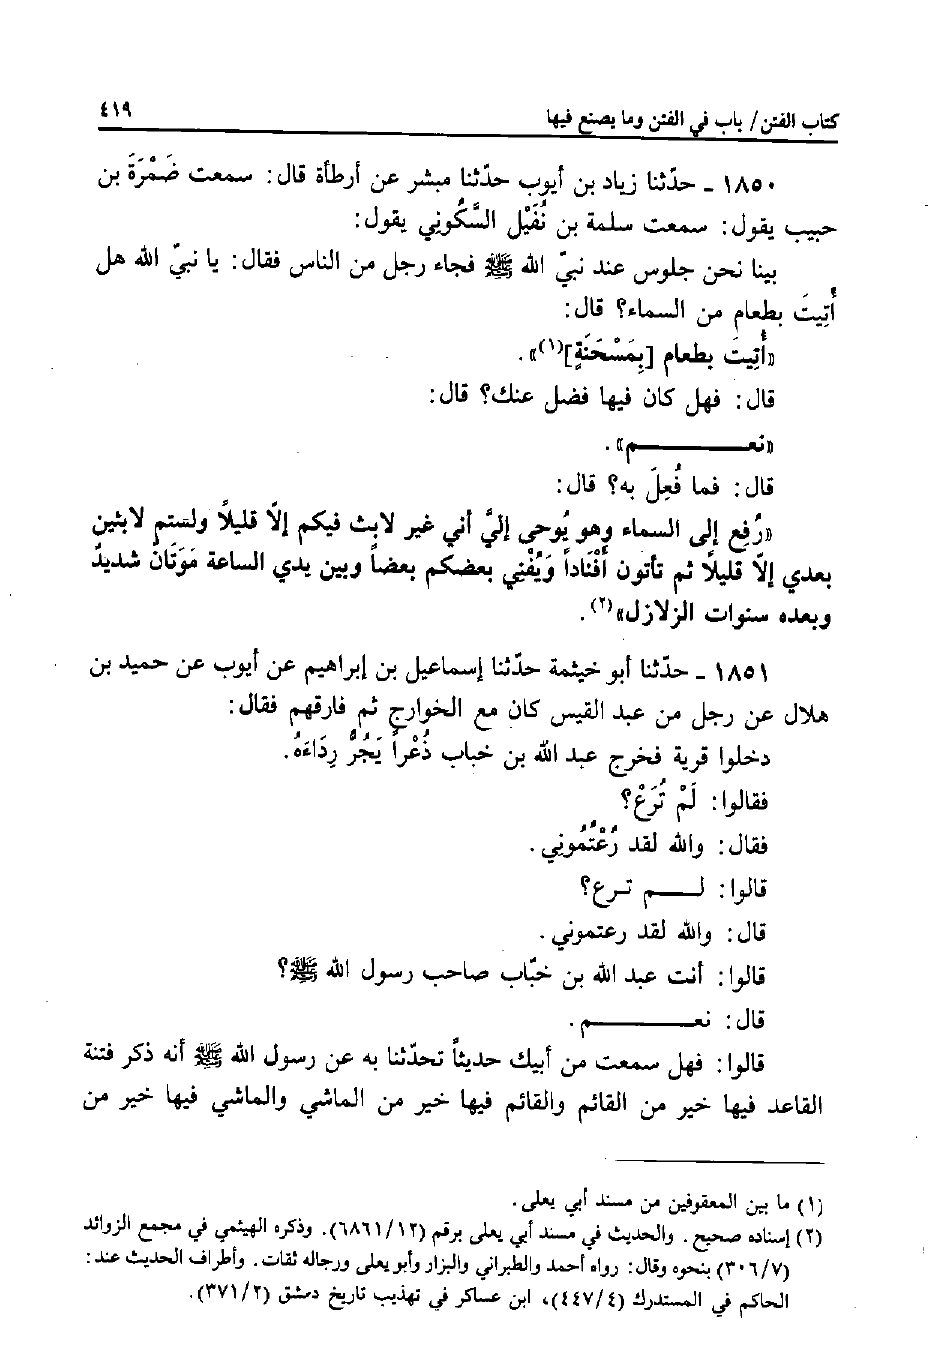 كتاب الفتن/ باب في الفتن وما يصنع فيها
٤١٩
١٨٥٠ ـ حدّثنا زياد بن أيوب حدّثنا مبشر عن أرطأة قال: سمعت ضَمْرَةَ بن
حبيب يقول: سمعت سلمة بن نُفَيْل السَّكُوني يقول:
بينا نحن جلوس عند نبيّ الله ﷺ فجاء رجل من الناس فقال: يا نبيّ الله هل
أُتِيتَ بطعام من السماء؟ قال:
«أُتِيتَ بطعام [بِمَسْخَنَةٍ](١)».
قال: فهل كان فيها فضل عنك؟ قال:
«نعـــــــــم».
قال: فما فُعِلَ به؟ قال:
«رُفِع إلى السماء وهو يُوحى إليَّ أني غير لابث فيكم إلّا قليلاً ولستم لابثين
بعدي إلّا قليلاً ثم تأتون أَفْنَاداً وَيُفْنِي بعضكم بعضاً وبين يدي الساعة مَوَتَانٌ شديدٌ
وبعده سنوات الزلازل»(٢).
١٨٥١ ـ حدّثنا أبو خيثمة حدّثنا إسماعيل بن إبراهيم عن أيوب عن حميد بن
هلال عن رجل من عبد القيس كان مع الخوارج ثم فارقهم فقال:
دخلوا قرية فخرج عبد الله بن خباب ذُعْراً يَجُرُّ رِدَاءَهُ.
فقالوا: لَمْ تُرَعْ؟
فقال: والله لقد رُعْتُمُوني.
قالوا: لـــم تـرع؟
قال: والله لقد رعتموني.
قالوا: أنت عبد الله بن خبّاب صاحب رسول الله ﷺ؟
قال: نعـــــــــم.
قالوا: فهل سمعت من أبيك حديثاً تحدّثنا به عن رسول الله ﷺ أنه ذكر فتنة
القاعد فيها خير من القائم والقائم فيها خير من الماشي والماشي فيها خير من
(١) ما بين المعقوفين من مسند أبي يعلى.
(٢) إسناده صحيح. والحديث في مسند أبي يعلى برقم (٦٨٦١/١٢). وذكره الهيثمي في مجمع الزوائد
(٣٠٦/٧) بنحوه وقال: رواه أحمد والطبراني والبزار وأبو يعلى ورجاله ثقات. وأطراف الحديث عند:
الحاكم في المستدرك (٤٤٧/٤)، ابن عساكر في تهذيب تاريخ دمشق (٣٧١/٢).